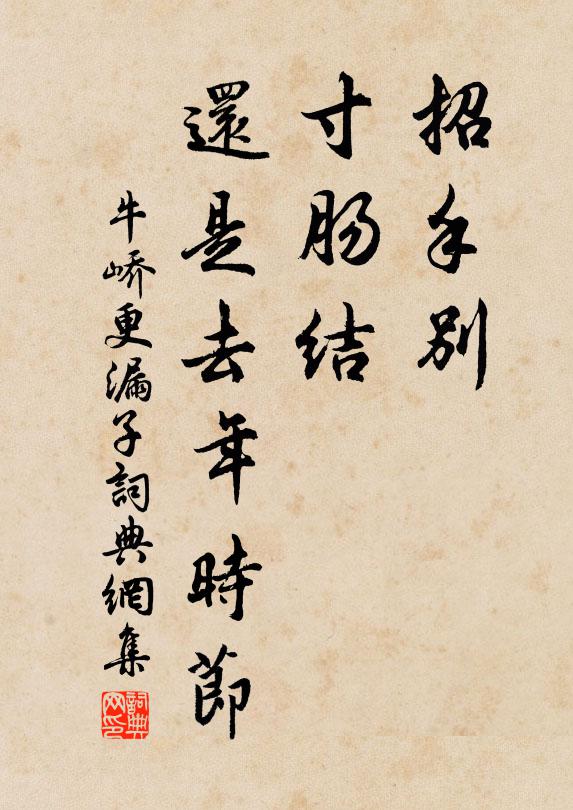 招手別
寸肠結
還是去年時節
牛嶠更漏子詞典網集
詞典网印